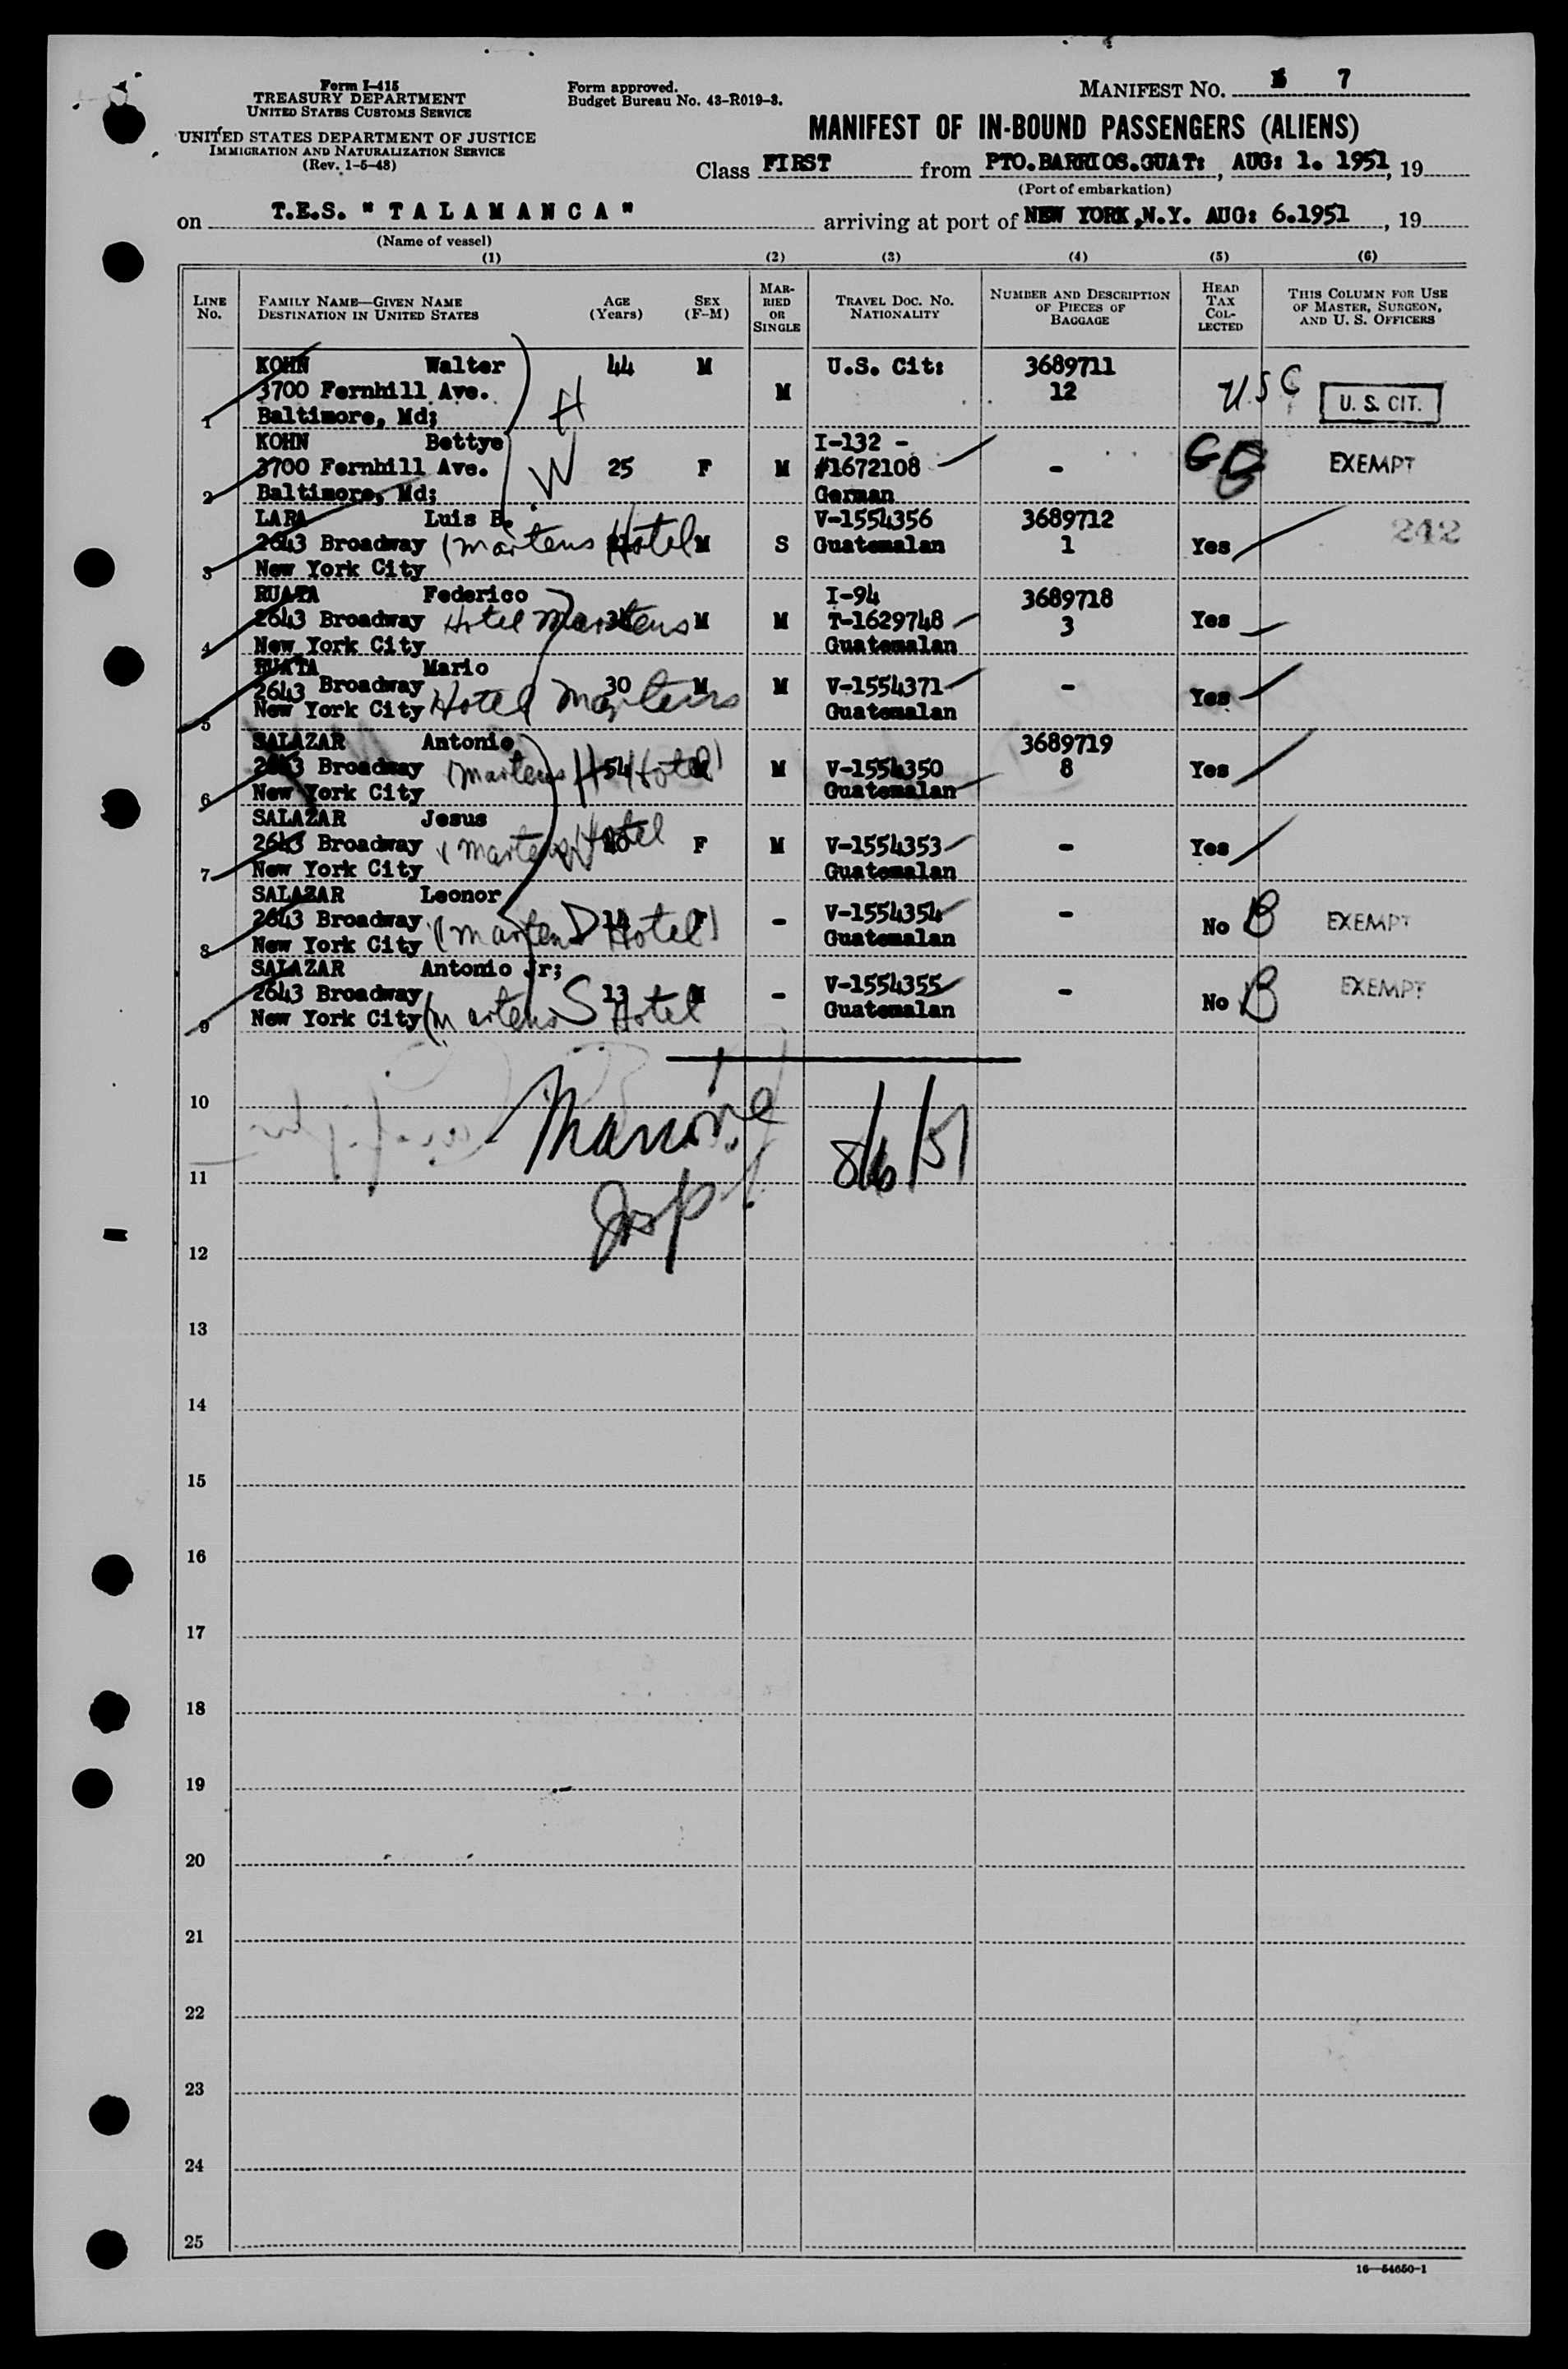 Form I-415
TREASURY DEPARTMENT
UNITED STATES CUSTOMS SERVICE
UNITED STATES DEPARTMENT OF JUSTICE
IMMIGRATION AND NATURALIZATION SERVICE
(Rev. 1-5-48)
Form approved.
Budget Bureau No. 43-R019-3.
MANIFEST NO. 7
MANIFEST OF IN-BOUND PASSENGERS (ALIENS)
Class FIRST from PTO.BARRIOS.GUAT: , AUG: 1. 1951, 19
(Port of embarkation)
on T.E.S. " T A L A M A N C A " arriving at port of NEW YORK,N.Y. AUG: 6.1951 , 19
(Name of vessel)
(1) (2) (3) (4) (5) (6)
LINE NO.
FAMILY NAME—GIVEN NAME
DESTINATION IN UNITED STATES
AGE (Years)
SEX (F-M)
MARRIED OR SINGLE
TRAVEL DOC. NO.
NATIONALITY
NUMBER AND DESCRIPTION OF PIECES OF BAGGAGE
HEAD TAX COLLECTED
THIS COLUMN FOR USE OF MASTER, SURGEON, AND U. S. OFFICERS
KOHN Walter 44 M U.S. Cit: 3689711
3700 Fernhill Ave. H M 12 USC U. S. CIT.
1 Baltimore, Md;
KOHN Bettye I-132 -
3700 Fernhill Ave. W 25 F M #1672108 - EXEMPT
2 Baltimore, Md; German
LARA Luis B. V-1554356 3689712 242
2643 Broadway (Martens Hotel M S Guatemalan 1 Yes
3 New York City
RUATA Federico I-94 3689718
2643 Broadway Hotel Martens M M T-1629748 3 Yes
4 New York City Guatemalan
RUATA Mario
2643 Broadway 30 M M V-1554371 - Yes
5 New York City Hotel Martens Guatemalan
SALAZAR Antonio 3689719
2643 Broadway (Martens Hotel) H 54 M M V-1554350 8 Yes
6 New York City Guatemalan
SALAZAR Jesus
2643 Broadway (Martens Hotel W F M V-1554353 - Yes
7 New York City Guatemalan
SALAZAR Leonor
2643 Broadway (Martens Hotel) D F - V-1554354 - No B EXEMPT
8 New York City Guatemalan
SALAZAR Antonio Jr;
2643 Broadway S 13 M - V-1554355 - No B EXEMPT
9 New York City (Martens Hotel Guatemalan
10
8/6/51
11
Insp
12
13
14
15
16
17
18
19
20
21
22
23
24
25
16—54650-1